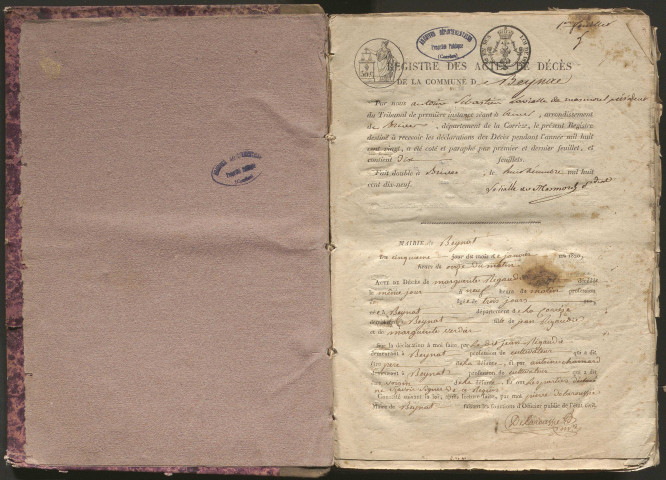 ARCHIVES DÉPARTEMENTALES
Propriété Publique
(Corrèze)
1er feuillet
REGISTRE DES ACTES DE DÉCÈS
DE LA COMMUNE D Beynat
Par nous antoine Sébastien Lachalle de marmont président
du Tribunal de première instance séant à brives, arrondissement
de Brives, département de la Corrèze, le présent Registre
destiné à recevoir les déclarations des Décès pendant l'année mil huit
cent vingt, a été coté et paraphé par premier et dernier feuillet, et
contient Dix feuillets.
Fait double à Brives, le mil huit
cent dix-neuf.
ARCHIVES DÉPARTEMENTALES
Propriété Publique
(Corrèze)
MAIRIE de Beynat
Du cinquieme jour du mois de janvier 1820,
heure de onze du matin
ACTE de Décès de marguerite Rigaudie décédée
le même jour à neuf heure du matin profession
âgée de trois jours
né à Beynat département de la Corrèze
demeurant à Beynat fille de jean Rigaudie
et de marguerite verdier
Sur la déclaration à moi faite par le dit jean Rigaudie
demeurant à Beynat profession de cultivateur qui a dit
être père de la défunte, et par antoine
demeurant à Beynat profession de cultivateur qui a dit
être voisin de la défunte. Et ont
ne savoir signer de ce requis
Constaté suivant la loi, après lecture faite, par moi pierre
Maire de Beynat faisant les fonctions d'Officier public de l'état civil.